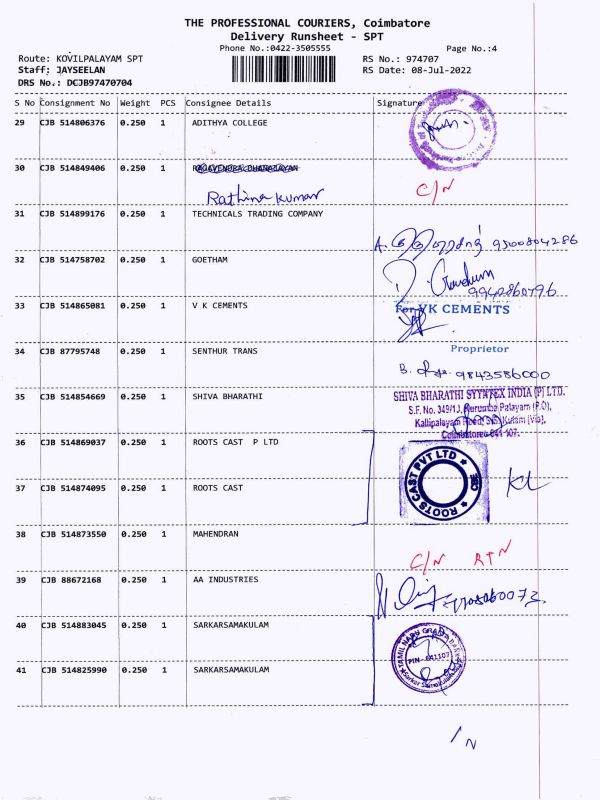 THE PROFESSIONAL COURIERS, Coimbatore
Delivery Runsheet - SPT
Phone No.:0422-3505555 Page No.:4
Route: KOVILPALAYAM SPT RS No.: 974707
Staff: JAYSEELAN RS Date: 08-Jul-2022
DRS No.: DCJB97470704
S No Consignment No Weight PCS Consignee Details Signature
29 CJB 514806376 0.250 1 ADITHYA COLLEGE
30 CJB 514849406 0.250 1
Rathina kumar C/N
31 CJB 514899176 0.250 1 TECHNICALS TRADING COMPANY
A. 9500804286
32 CJB 514758702 0.250 1 GOETHAM
9942860796
33 CJB 514865081 0.250 1 V K CEMENTS For VK CEMENTS
Proprietor
34 CJB 87795748 0.250 1 SENTHUR TRANS
B. 9843586000
35 CJB 514854669 0.250 1 SHIVA BHARATHI SHIVA BHARATHI SYNTEX INDIA (P) LTD.
S.F. No. 349/1J, Kurumba Palayam (P.O),
Kallipalayam Road, S.S. Kulam (Via),
Coimbatore-641 107.
36 CJB 514869037 0.250 1 ROOTS CAST P LTD
ROOTS CAST PVT LTD CBE
37 CJB 514874095 0.250 1 ROOTS CAST
38 CJB 514873550 0.250 1 MAHENDRAN
C/N RTN
39 CJB 88672168 0.250 1 AA INDUSTRIES
40 CJB 514883045 0.250 1 SARKARSAMAKULAM
TAMIL NADU GRAMA BANK
PIN-641107
41 CJB 514825990 0.250 1 SARKARSAMAKULAM